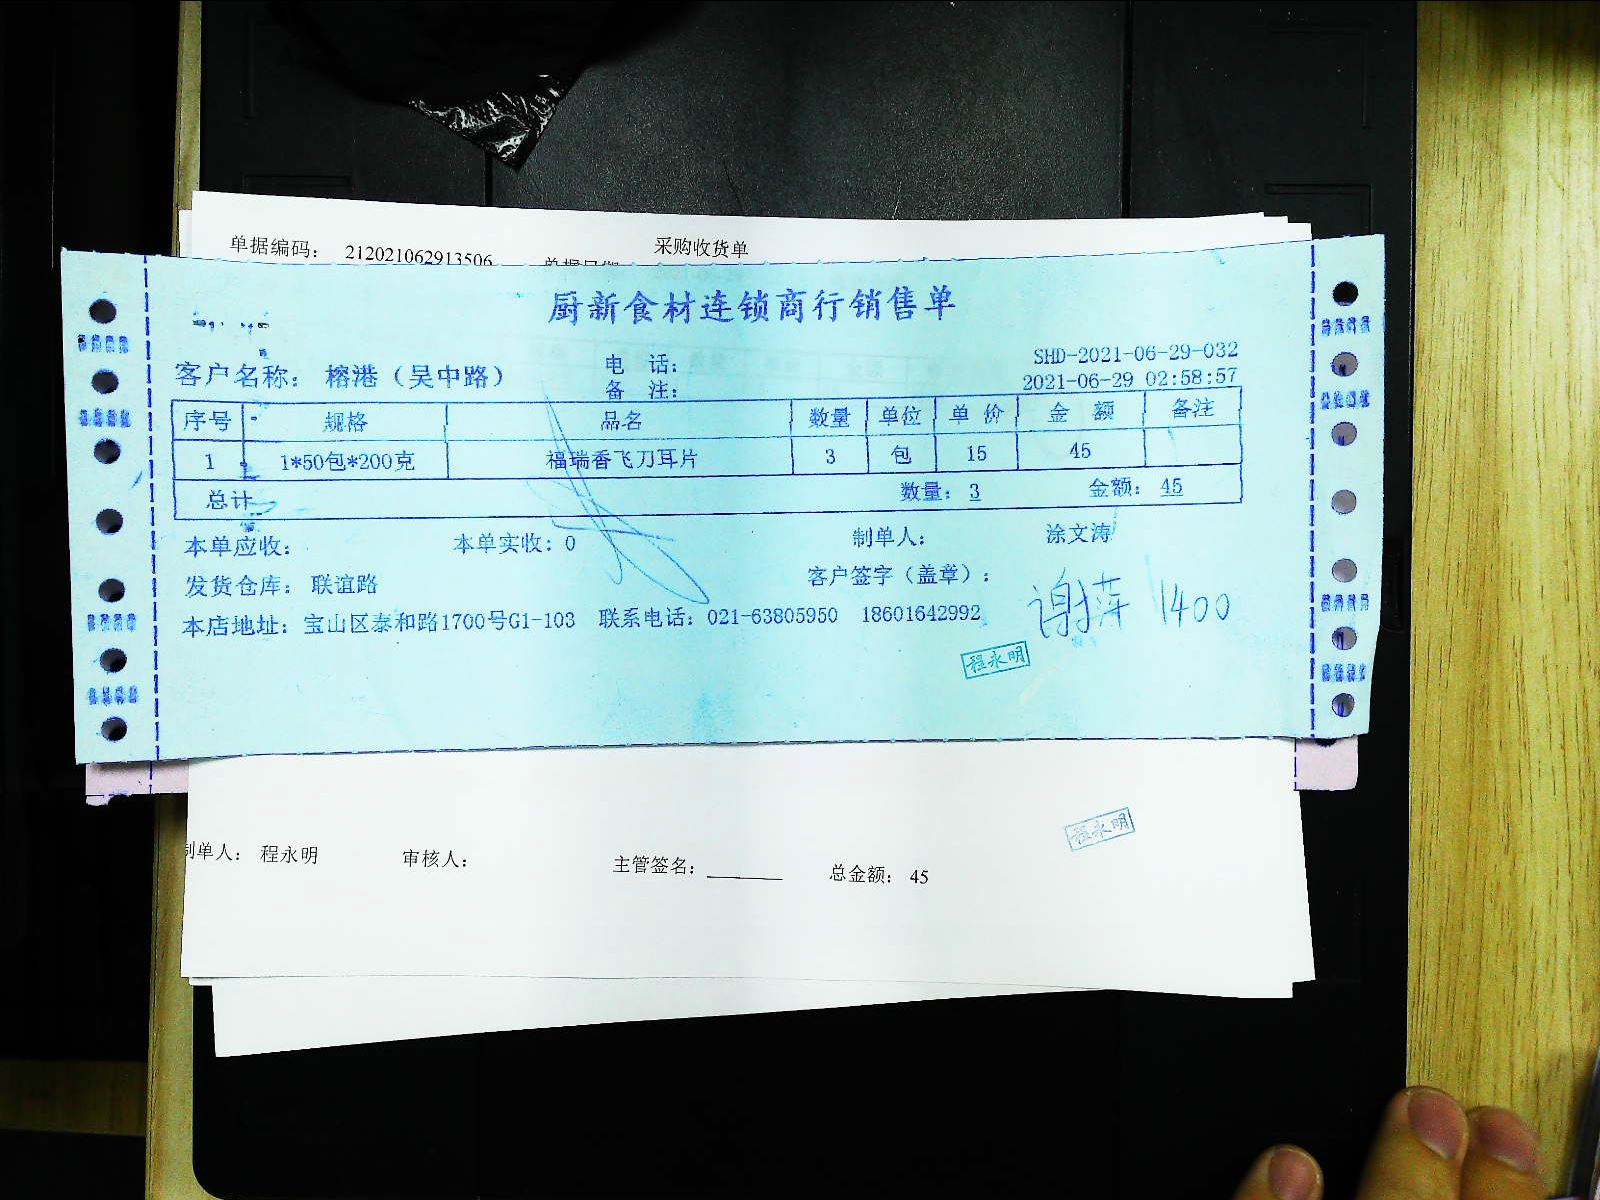 单据编码： 212021062913506 采购收货单
厨新食材连锁商行销售单
客户名称： 榕港（吴中路） 电 话： SHD-2021-06-29-032
备 注： 2021-06-29 02:58:57
序号 规格 品名 数量 单位 单价 金额 备注
1 1*50包*200克 福瑞香飞刀耳片 3 包 15 45
总计 数量：3 金额：45
本单应收： 本单实收：0 制单人： 涂文涛
发货仓库： 联谊路 客户签字（盖章）：
本店地址：宝山区泰和路1700号G1-103 联系电话：021-63805950 18601642992 谢萍 1400
程永明
程永明
制单人： 程永明 审核人： 主管签名： 总金额： 45